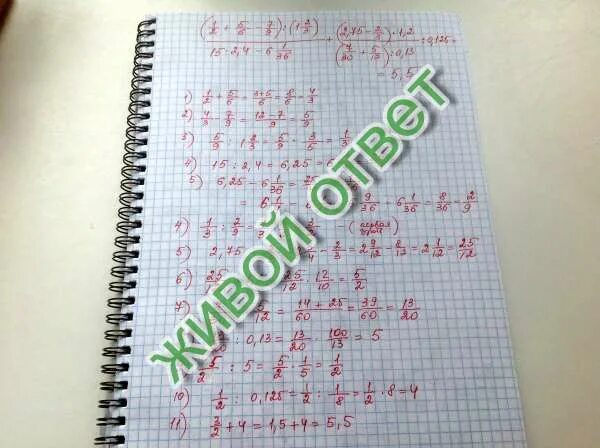 (1/2 + 5/6 - 7/9) : (1 2/3) / 15 : 2,4 - 6 1/36 + (2,75 - 2/3) · 1,2 / (7/30 + 5/12) : 0,13 : 0,125 =
= 5,5
1) 1/2 + 5/6 = 3+5/6 = 8/6 = 4/3
2) 4/3 - 7/9 = 12-7/9 = 5/9
3) 5/9 : 1 2/3 = 5/9 · 3/5 = 1/3
4) 15 : 2,4 = 6,25
5) 6,25 - 6 1/36 =
= 6 9/36 - 6 1/36 = 8/36 = 2/9
4) 1/3 : 2/9 = (первая
5) 2,75 - 2/3 = 2 9/12 - 8/12 = 2 1/12 = 25/12
6) 25/12 · 12/10 = 5/2
7) 5/12 = 14+25/60 = 39/60 = 13/20
: 0,13 = 13/20 · 100/13 = 5
5/2 : 5 = 5/2 · 1/5 = 1/2
10) 1/2 : 0,125 = 1/2 : 1/8 = 1/2 · 8 = 4
11) 3/2 + 4 = 1,5 + 4 = 5,5
ЖИВОЙ ОТВЕТ